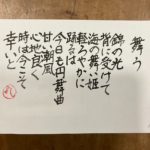 舞う
錦の光
背に受けて
海の舞い姫
軽ろやかに
踊るは
今日も円舞曲
甘い潮風
心地良く
時は今こそ
幸いと